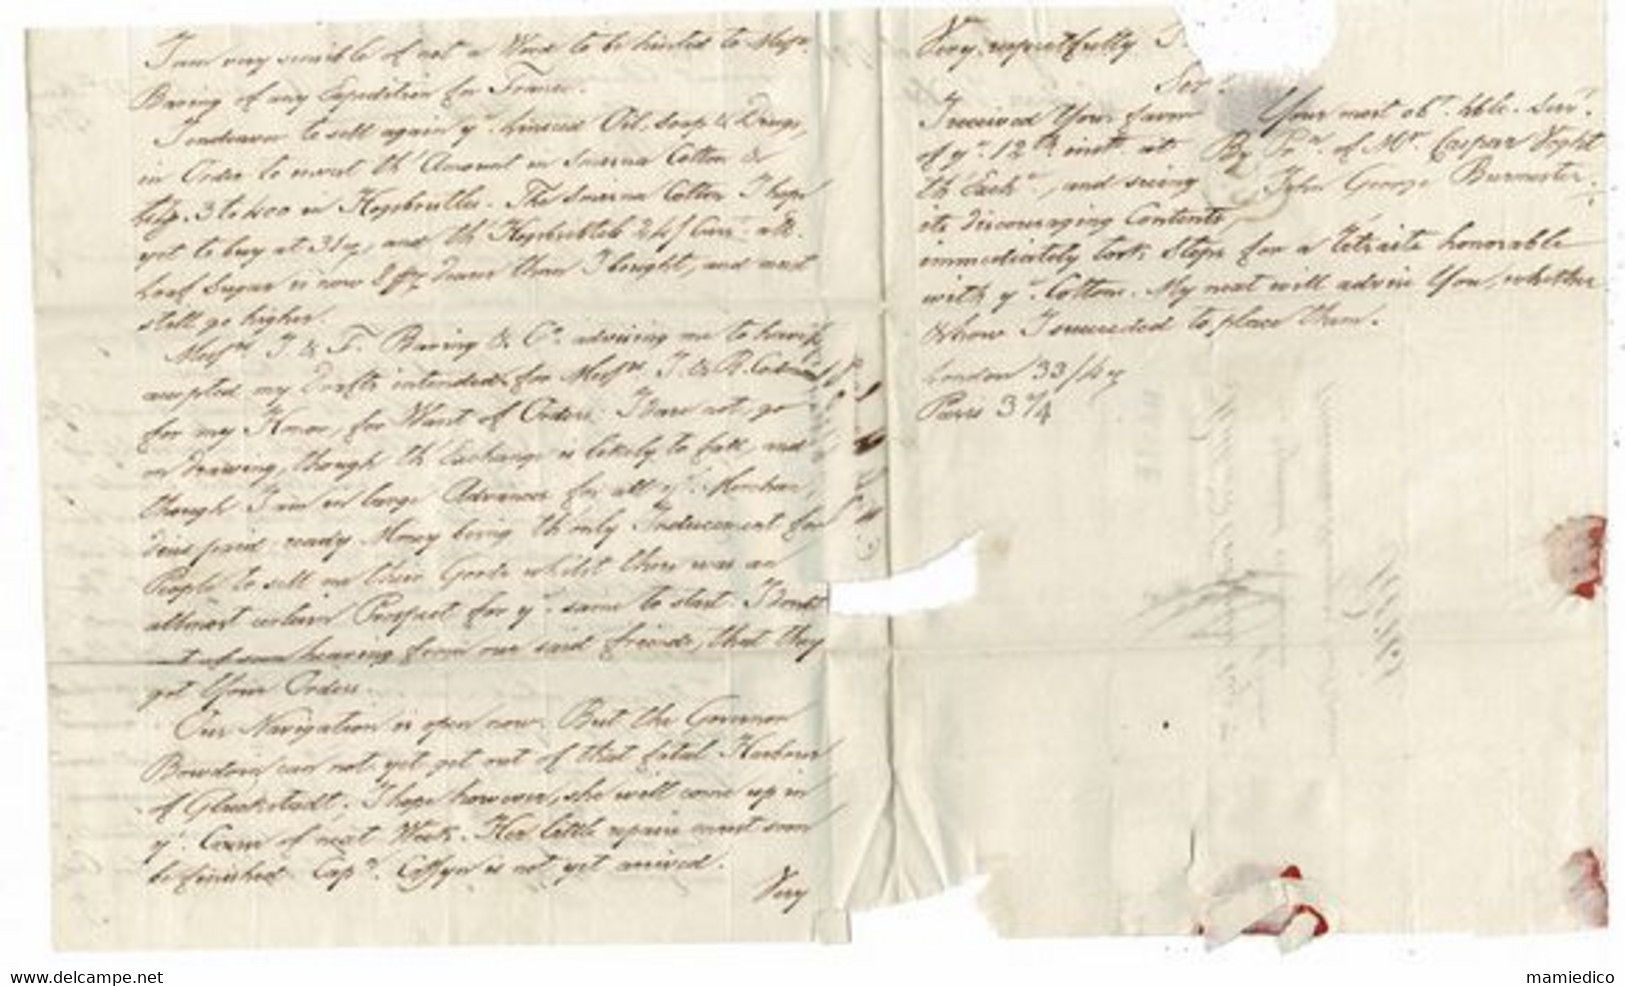 I am very sensible of not a Word to be hinted to Messrs
Baring of any Expedition for France.
I endeavor to sell again yr. Linseed Oil, Soap & Drugs,
in Order to invest th' Amount in Smirna Cotton &
3 to 400 in . The Smirna Cotton I hope
yet to buy at 31 , and th'
Loaf Sugar is now dearer than I bought, and must
still go higher.
Messrs J & F. Baring & Co. advising me to have
accepted my Drafts intended for Messrs J. & R. Codman
for my Honor, for Want of Orders; I dare not go
on drawing, though th' Exchange is likely to fall, and
though I am in large Advances for all ye. Merchan,
dises paid ready Money being th' only Inducement for
People to sell me their Goods whilst there was an
allmost certain Prospect for ye. same to start. I doubt
not of soon hearing from our said friends, that they
got Your Orders.
Our Navigation is open now. But the Governor
Bowdoin can not yet get out of that fatal Harbour
of Gluckstadt. I hope however, she will come up in
ye. Course of next Week. Her little repairs must soon
be finished. Capn. Coffyn is not yet arrived.
Very
Very respectfully
Your most obt. hble. Servt.
By Pro. of Mr. Caspar Voght
John George Burmester.
I received Your favor
of ye. 12th inst. at
th' Exche., and seeing
its discouraging Contents,
immediately took Steps for a retraite honorable
with ye. Cottons. My next will advise You, whether
& how I succeeded to place them.
London 33/4
Paris
delcampe.net
mamiedico